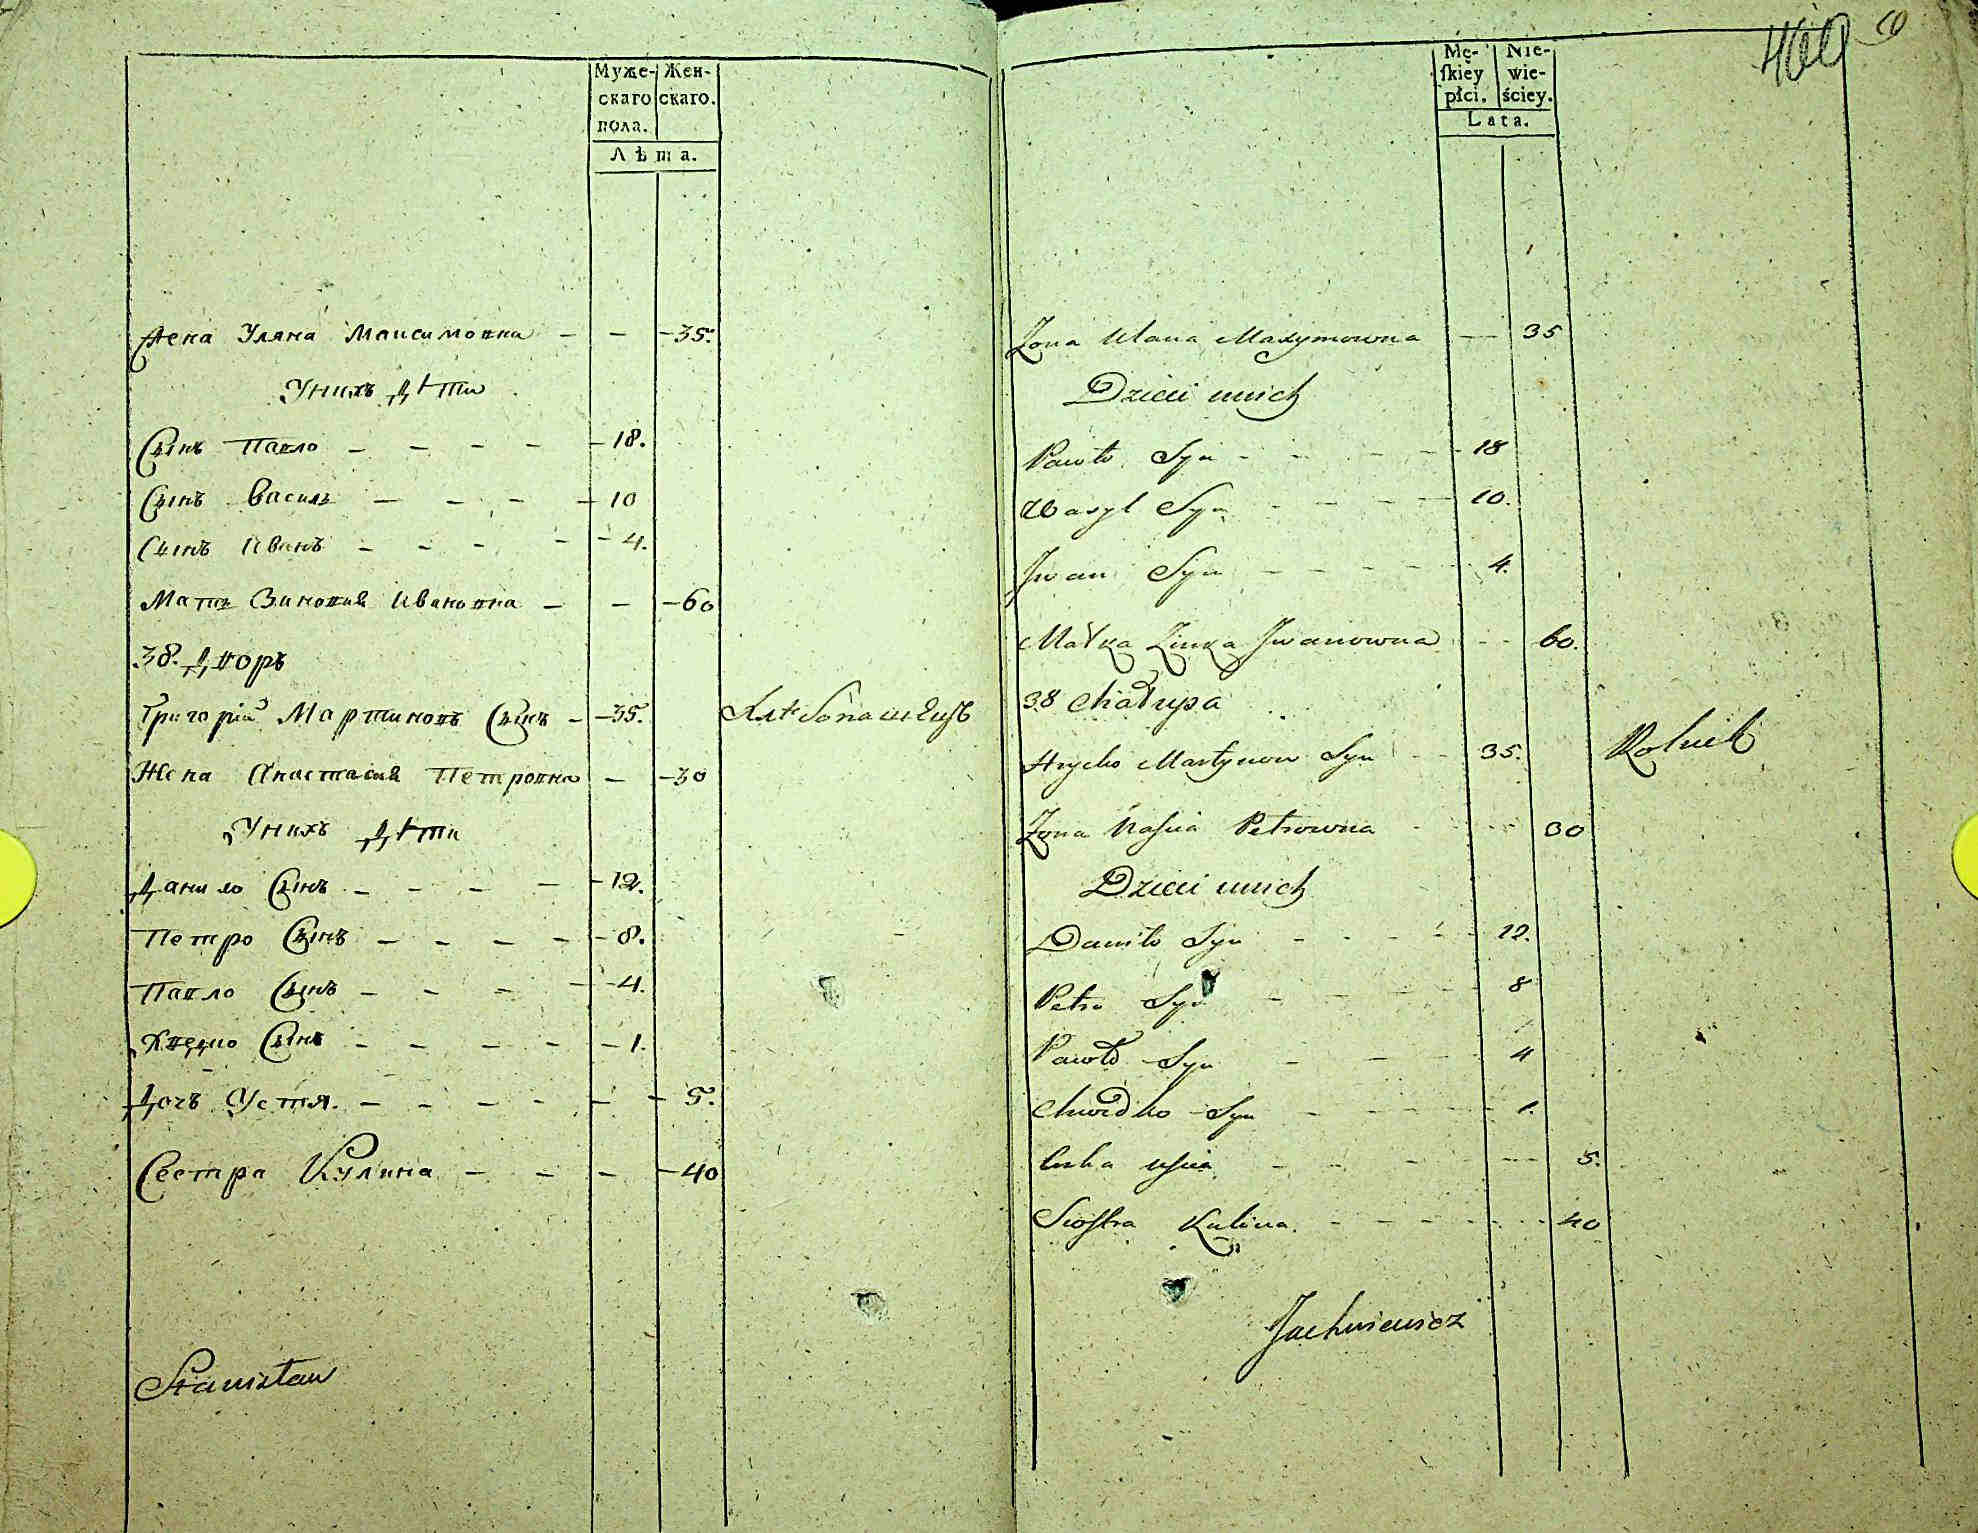 Муже-
скаго
пола.
Жен-
скаго.
Лѣта.
Жена Уляна Максимовна - - - 35.
Унихъ Дѣти
Сынъ Павло - - - - - 18.
Сынъ Василь - - - - 10
Сынъ Иванъ - - - - - 4.
Мать Зиновия Ивановна - - - 60
38. Дворъ
Григорій Мартиновъ Сынъ - - 35. Хлѣбопашецъ
Жена Анастасия Петровна - - 30
Унихъ Дѣти
Данило Сынъ - - - - - 12.
Петро Сынъ - - - - - 8.
Павло Сынъ - - - - - 4.
Хведко Сынъ - - - - - 1.
Дочъ Устя. - - - - - - 5.
Сестра Кулина - - - - 40
Stanisław
460
Mę-
ſkiey
płci.
Nie-
wie-
ściey.
Lata.
Zona Ulana Maxymowna - 35
Dzieci unich
Pawło Syn - - - - 18
Wasyl Syn - - - - 10.
Jwan Syn - - - - - 4.
Matka Zinka Jwanowna - - 60.
38 Chałupa
Hrycko Martynow Syn - - 35. Rolnik
Zona Naſcia Petrowna - - - 30
Dzieci unich
Daniło Syn - - - - - 12.
Petro Syn - - - - 8
Pawło Syn - - - 4
Chwedko Syn - - - - - 1.
Corka Uſcia - - - - - 5.
Sioſtra Kulina. - - - - - - 40
Jachniewicz